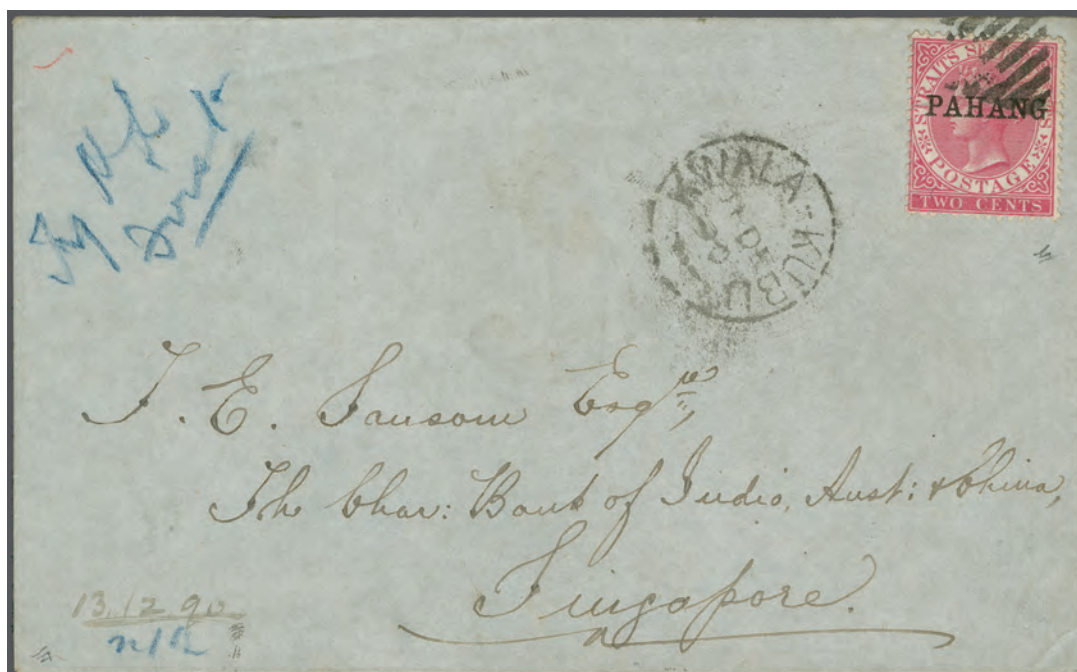 STRAITS SE
PAHANG
POSTAGE
TWO CENTS
KWALA-KUBU
DE
J. E. Sansom Esqre,
The Char: Bank of India, Aust: & China,
Singapore.
13.12.90